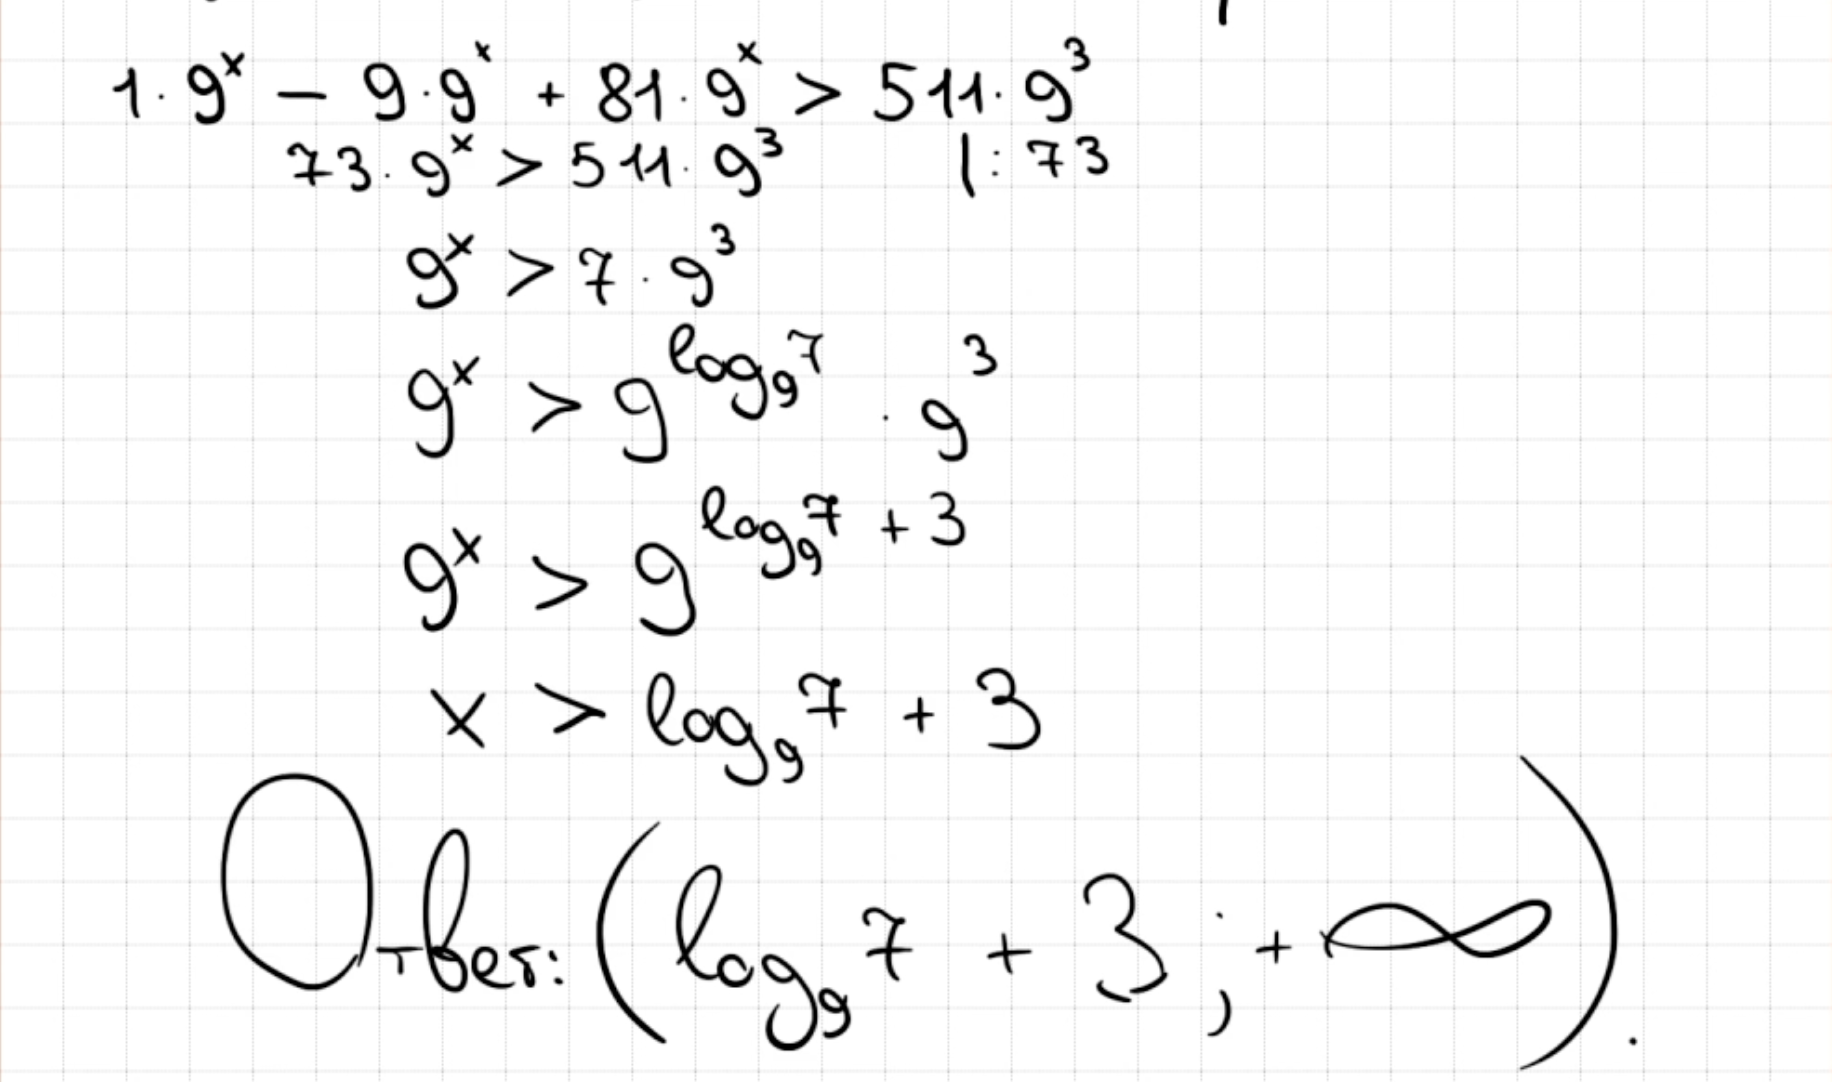 1 · 9ˣ − 9 · 9ˣ + 81 · 9ˣ > 511 · 9³
73 · 9ˣ > 511 · 9³ |: 73
9ˣ > 7 · 9³
9ˣ > 9^(log₉7) · 9³
9ˣ > 9^(log₉7 + 3)
x > log₉7 + 3
Ответ: (log₉7 + 3; +∞).